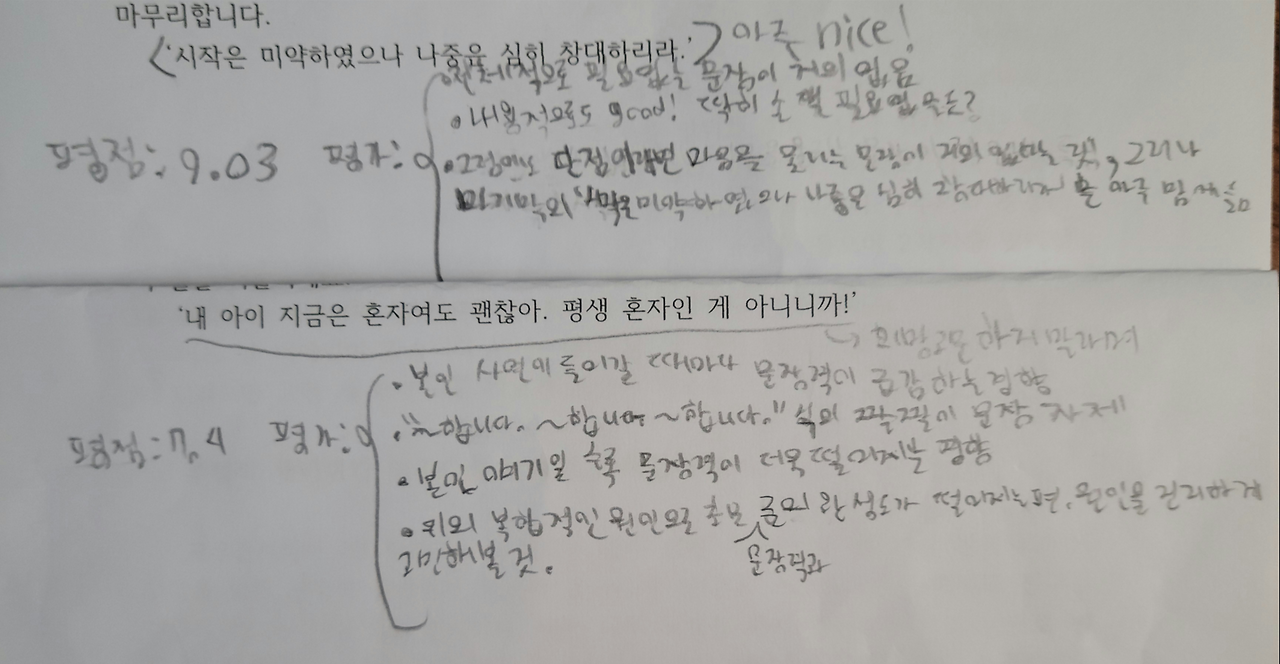 마무리합니다.
'시작은 미약하였으나 나중은 심히 창대하리라.' 아주 nice!
전체적으로 필요없는 문장이 거의 없음
• 내용적으로도 good! 딱히 손 댈 필요없을 듯?
평점: 9.03 평가: • 그럼에도 단점이라면 마음을 울리는 문장이 거의 없다는 것!, 그러나
마지막의, 시작은 미약하였으나 나중은 심히 창대하리라 는 아주 맘에 듦
'내 아이 지금은 혼자여도 괜찮아. 평생 혼자인 게 아니니까!'
→ 희망고문 하지 말라며
• 본인 사연이 들어갈 때마다 문장력이 급감하는 경향
평점: 7.4 평가: • "~합니다. ~합니다. ~합니다." 식의 문장 자제
• 본인 얘기일 수록 문장력이 더욱 떨어지는 경향
• 이외 복합적인 원인으로 글의 완성도가 떨어지는 편. 원인을 진지하게
고민해볼 것. 문장력과